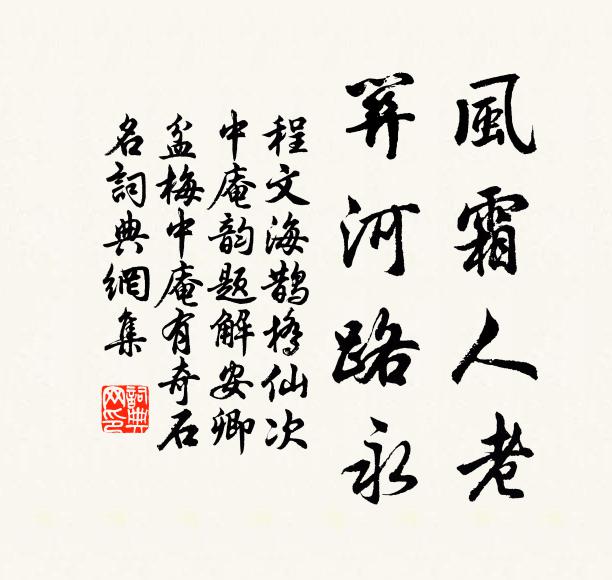 風霜人老
關河路永
程文海鹊橋仙次
中庵韵题解安卿
盆梅中庵有奇石
名詞典網集
詞典
网印